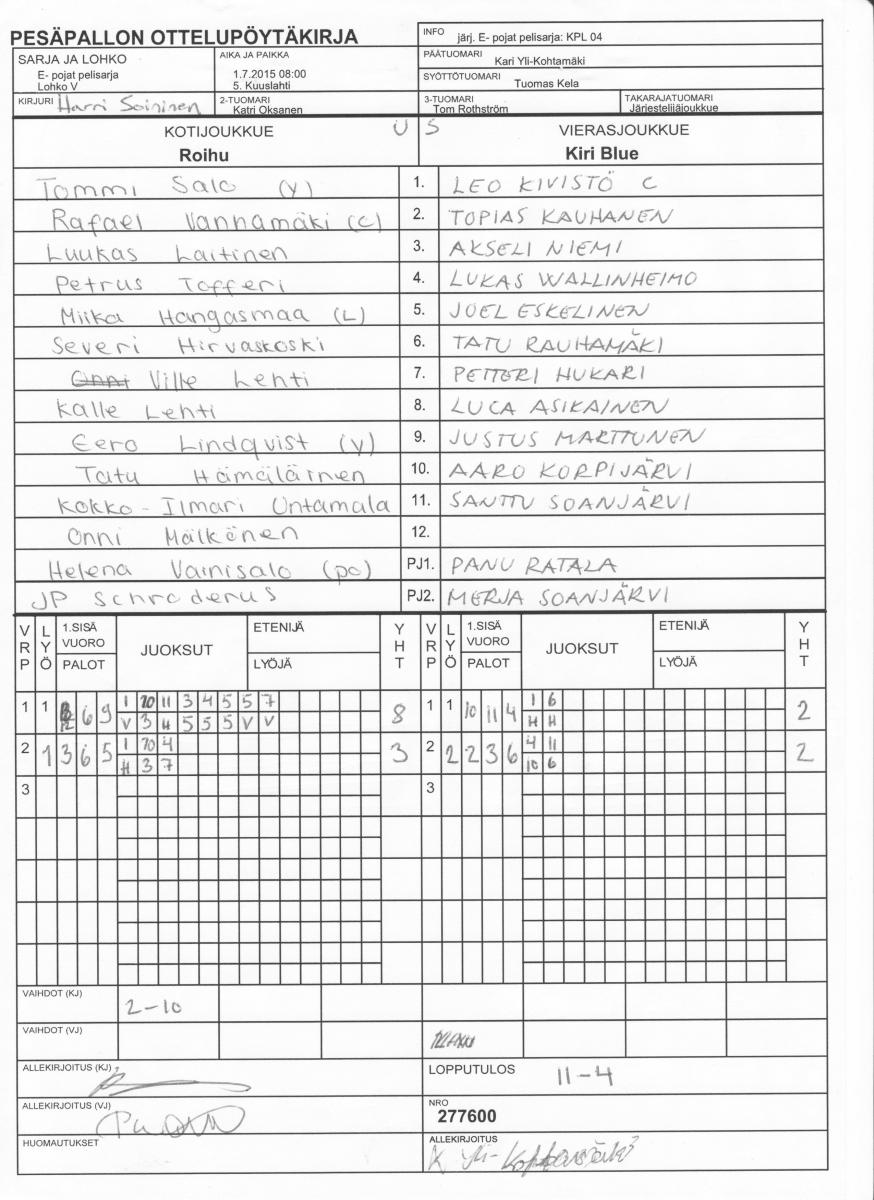 PESÄPALLON OTTELUPÖYTÄKIRJA
INFO järj. E- pojat pelisarja: KPL 04
SARJA JA LOHKO
E- pojat pelisarja
Lohko V
AIKA JA PAIKKA
1.7.2015 08:00
5. Kuuslahti
PÄÄTUOMARI
Kari Yli-Kohtamäki
SYÖTTÖTUOMARI
Tuomas Kela
KIRJURI Harri Soininen
2-TUOMARI
Katri Oksanen
3-TUOMARI
Tom Rothström
TAKARAJATUOMARI
Järjestelijäjoukkue
KOTIJOUKKUE U S VIERASJOUKKUE
Roihu Kiri Blue
Tommi Salo (V) 1. LEO KIVISTÖ C
Rafael Vannamäki (C) 2. TOPIAS KAUHANEN
Luukas Laitinen 3. AKSELI NIEMI
Petrus Tofferi 4. LUKAS WALLINHEIMO
Miika Hangasmaa (L) 5. JOEL ESKELINEN
Severi Hirvaskoski 6. TATU RAUHAMÄKI
Onni Ville Lehti 7. PETTERI HUKARI
Kalle Lehti 8. LUCA ASIKAINEN
Eero Lindqvist (V) 9. JUSTUS MARTTUNEN
Tatu Hämäläinen 10. AARO KORPIJÄRVI
Kokko-Ilmari Untamala 11. SANTTU SOANJÄRVI
Onni Mälkönen 12.
Helena Vainisalo (pc) PJ1. PANU RATALA
JP Schroderus PJ2. MERJA SOANJÄRVI
VRP LYÖ 1.SISÄ VUORO PALOT JUOKSUT ETENIJÄ LYÖJÄ YHT VRP LYÖ 1.SISÄ VUORO PALOT JUOKSUT ETENIJÄ LYÖJÄ YHT
1 1 12 6 9 1 10 11 3 4 5 5 7 8 1 1 10 11 4 1 6 2
V 3 4 5 5 5 V V H H
2 1 3 6 5 1 10 4 3 2 2 2 3 6 4 11 2
H 3 7 10 6
3 3
VAIHDOT (KJ) 2-10
VAIHDOT (VJ)
ALLEKIRJOITUS (KJ)
LOPPUTULOS 11-4
ALLEKIRJOITUS (VJ)
NRO
277600
HUOMAUTUKSET
ALLEKIRJOITUS
K Yli-Kohtamäki